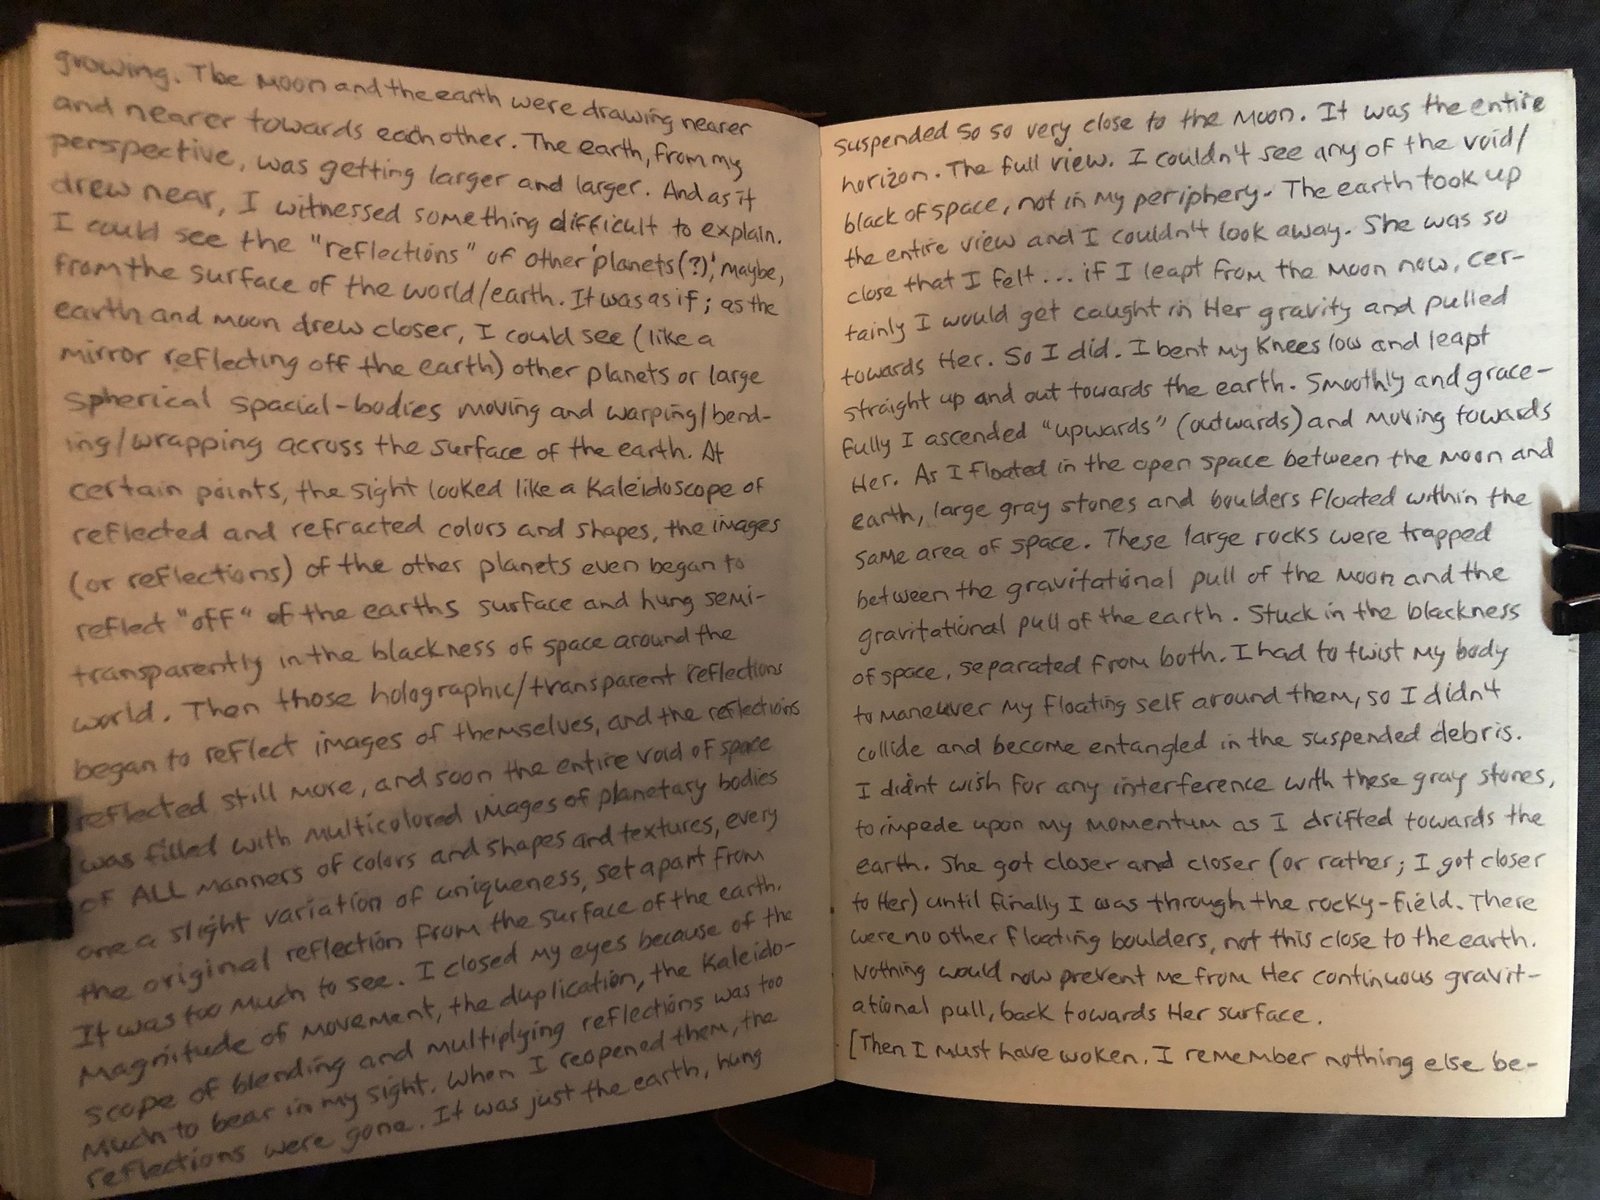 growing. The Moon and the earth were drawing nearer
and nearer towards each other. The earth, from my
perspective, was getting larger and larger. And as it
drew near, I witnessed something difficult to explain.
I could see the "reflections" of other 'planets(?)', maybe,
from the surface of the world/earth. It was as if; as the
earth and moon drew closer, I could see (like a
mirror reflecting off the earth) other planets or large
spherical spacial-bodies moving and warping/bend-
ing/wrapping across the surface of the earth. At
certain points, the sight looked like a Kaleidoscope of
reflected and refracted colors and shapes, the images
(or reflections) of the other planets even began to
reflect "off" of the earths surface and hung semi-
transparently in the blackness of space around the
world. Then those holographic/transparent reflections
began to reflect images of themselves, and the reflections
reflected still more, and soon the entire void of space
was filled with multicolored images of planetary bodies
of ALL manners of colors and shapes and textures, every
one a slight variation of uniqueness, set apart from
the original reflection from the surface of the earth.
It was too much to see. I closed my eyes because of the
magnitude of movement, the duplication, the Kaleido-
scope of blending and multiplying reflections was too
much to bear in my sight. When I reopened them, the
reflections were gone. It was just the earth, hung
suspended so so very close to the Moon. It was the entire
horizon. The full view. I couldn't see any of the void/
black of space, not in my periphery. The earth took up
the entire view and I couldn't look away. She was so
close that I felt... if I leapt from the Moon now, cer-
tainly I would get caught in Her gravity and pulled
towards Her. So I did. I bent my Knees low and leapt
straight up and out towards the earth. Smoothly and grace-
fully I ascended "upwards" (outwards) and moving towards
Her. As I floated in the open space between the Moon and
earth, large gray stones and boulders floated within the
same area of space. These large rocks were trapped
between the gravitational pull of the Moon and the
gravitational pull of the earth. Stuck in the blackness
of space, separated from both. I had to twist my body
to maneuver my floating self around them, so I didn't
collide and become entangled in the suspended debris.
I didnt wish for any interference with these gray stones,
to impede upon my momentum as I drifted towards the
earth. She got closer and closer (or rather; I got closer
to Her) until finally I was through the rocky-field. There
were no other floating boulders, not this close to the earth.
Nothing would now prevent me from Her continuous gravit-
ational pull, back towards Her surface.
[Then I must have woken. I remember nothing else be-